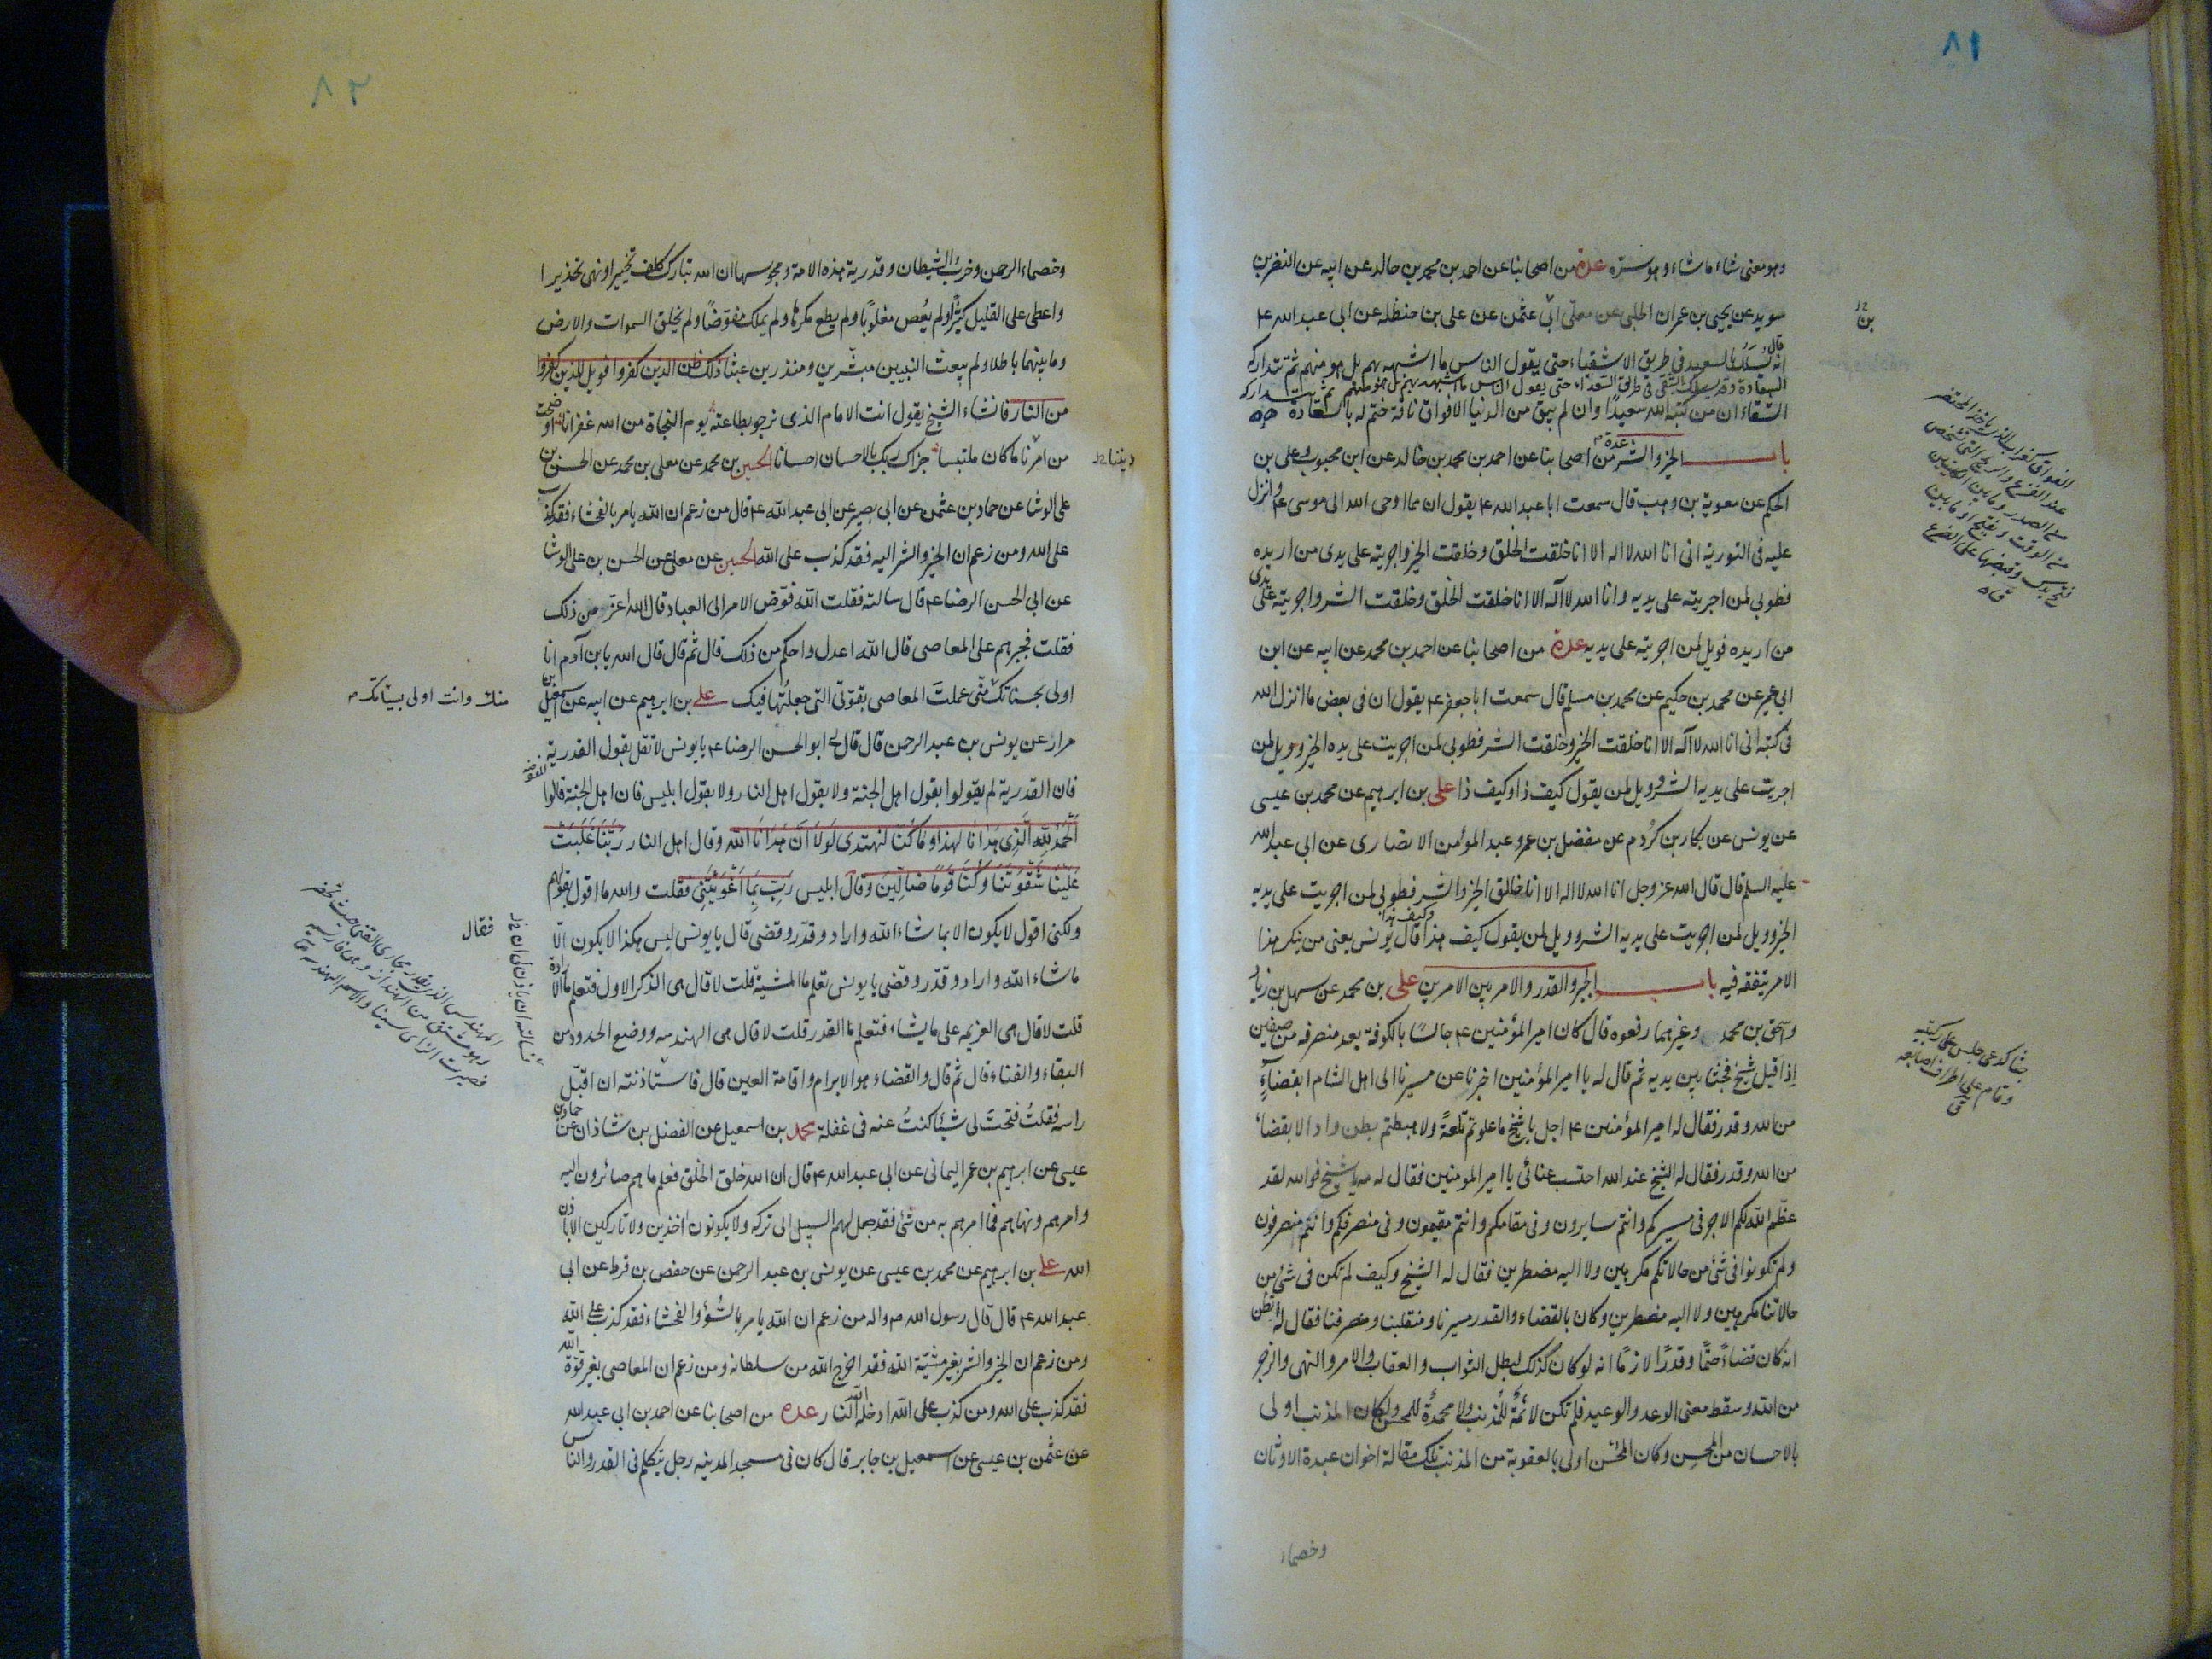 ٨١
وهو معنى شاء ما شاء وهو سره عدة من اصحابنا عن احمد بن محمد بن خالد عن ابيه عن النضر بن
سويد عن يحيى بن عمران الحلبى عن معلى ابى عثمن عن على بن حنظلة عن ابى عبد الله ع
قال
انه يُسلَك بالسعيد فى طريق الاشقياء حتى يقول الناس ما اشبهه بهم بل هو منهم ثم تتداركه
السعادة وقد يسلك بالشقى فى طريق السعداء حتى يقول الناس ما اشبهه بهم بل هو منهم ثم يتداركه
الشقاء ان من كتبه الله سعيدًا وان لم يبق من الدنيا الا فواق ناقة ختم له بالسعادة
باب الخير والشر عدة من اصحابنا عن احمد بن محمد بن خالد عن ابن محبوب وعلى بن
الحكم عن معوية بن وهب قال سمعت ابا عبد الله ع يقول ان مما اوحى الله الى موسى ع وانزل
عليه فى التورية انى انا الله لا اله الا انا خلقت الخلق وخلقت الخير واجريته على يدى من اريده
فطوبى لمن اجريته على يديه وانا الله لا اله الا انا خلقت الخلق وخلقت الشر واجريته على يدى
من اريده فويل لمن اجريته على يديه عدة من اصحابنا عن احمد بن محمد عن ابيه عن ابن
ابى عمير عن محمد بن حكيم عن محمد بن مسلم قال سمعت ابا جعفر ع يقول ان فى بعض ما انزل الله
فى كتبه انى انا الله لا اله الا انا خلقت الخير وخلقت الشر فطوبى لمن اجريت على يده الخير وويل لمن
اجريت على يديه الشر وويل لمن يقول كيف ذا وكيف ذا على بن ابرهيم عن محمد بن عيسى
عن يونس عن بكار بن كردم عن مفضل بن عمر وعبد المؤمن الانصارى عن ابى عبد الله
عليه السلم قال قال الله عز وجل انا الله لا اله الا انا خالق الخير والشر فطوبى لمن اجريت على يديه
الخير وويل لمن اجريت على يديه الشر وويل لمن يقول كيف هذا وكيف هذا قال يونس يعنى من ينكر هذا
الامر يتفقه فيه باب الجبر والقدر والامر بين الامرين على بن محمد عن سهل بن زياد
واسحق بن محمد وغيرهما رفعوه قال كان امير المؤمنين ع جالسًا بالكوفة بعد منصرفه من صفين
اذ اقبل شيخ فجثا بين يديه ثم قال له يا امير المؤمنين اخبرنا عن مسيرنا الى اهل الشام ابقضاءٍ
من الله وقدر فقال له امير المؤمنين ع اجل يا شيخ ما علوتم تلعةً ولا هبطتم بطن واد الا بقضاء
من الله وقدر فقال له الشيخ عند الله احتسب عنائى يا امير المؤمنين فقال له مه يا شيخ فوالله لقد
عظّم الله لكم الاجر فى مسيركم وانتم سايرون وفى مقامكم وانتم مقيمون وفى منصرفكم وانتم منصرفون
ولم تكونوا فى شئ من حالاتكم مكرهين ولا اليه مضطرين فقال له الشيخ وكيف لم نكن فى شئ من
حالاتنا مكرهين ولا اليه مضطرين وكان بالقضاء والقدر مسيرنا ومنقلبنا ومنصرفنا فقال له وتظن
انه كان قضاءً حتمًا وقدرًا لازمًا انه لو كان كذلك لبطل الثواب والعقاب والامر والنهى والزجر
من الله وسقط معنى الوعد والوعيد فلم تكن لائمةٌ للمذنب ولا محمدةٌ للمحسن ولكان المذنب اولى
بالاحسان من المحسن وكان المحسن اولى بالعقوبة من المذنب تلك مقالة اخوان عبدة الاوثان
وخصماء
بن
جثا كدعى جلس على ركبتيه
وقام على اطراف اصابعه
ق
٨٢
وخصماء الرحمن وحزب الشيطان وقدرية هذه الامة ومجوسها ان الله تبارك كلف تخييرا ونهى تحذيرا
واعطى على القليل كثيرًا ولم يُعص مغلوبًا ولم يطع مكرهًا ولم يملك مفوّضًا ولم يخلق السموات والارض
وما بينهما باطلا ولم يبعث النبيين مبشّرين ومنذرين عبثًا ذلك ظن الذين كفروا فويل للذين كفروا
من النار فانشاء الشيخ يقول انت الامام الذى نرجو بطاعته يوم النجاة من الله غفرانا اوضحت
من امرنا ما كان ملتبسا جزاك ربك بالاحسان احسانا الحسين بن محمد عن معلى بن محمد عن الحسن بن
على الوشا عن حماد بن عثمن عن ابى بصير عن ابى عبد الله ع قال من زعم ان الله يامر بالفحشاء فقد كذب
على الله ومن زعم ان الخير والشر اليه فقد كذب على الله الحسين عن معلى عن الحسن بن على الوشا
عن ابى الحسن الرضا ع قال سالته فقلت الله فوّض الامر الى العباد قال الله اعز من ذلك
فقلت فجبرهم على المعاصى قال الله اعدل واحكم من ذلك قال ثم قال قال الله يا بن آدم انا
اولى بحسناتك منّى عملتَ المعاصى بقوّتى التى جعلتُها فيك على بن ابرهيم عن ابيه عن اسمعيل بن
مرار عن يونس بن عبد الرحمن قال قال لى ابو الحسن الرضا ع يا يونس لا تقل بقول القدرية
فان القدرية لم يقولوا بقول اهل الجنة ولا بقول اهل النار ولا بقول ابليس فان اهل الجنة قالوا
اَلحَمدُ لِلّهِ الَّذِى هَدَانَا لهذا وما كُنّا لنهتدى لَولَا اَنْ هَدَانَا اللّه وقال اهل النار رَبَّنَا غَلَبَتْ
عَلَيْنَا شِقْوَتُنَا وَكُنّا قَومًا ضالّينَ وقال ابليس رَبِّ بِمَا اَغْوَيْتَنِى فقلت والله ما اقول بقولهم
ولكنى اقول لا يكون الا بما شاء الله واراد وقدّر وقضى قال يا يونس ليس هكذا لا يكون الّا
ما شاء الله واراد وقدّر وقضى يا يونس تعلم ما المشيّة قلت لا قال هى الذكر الاول فتعلم ما الارادة
قلت لا قال هى العزيمه على ما يشاء فتعلم ما القدر قلت لا قال هى الهندسه ووضع الحدود من
البقاء والفناء قال ثم قال والقضاء هو الابرام واقامة العين قال فاستاذنته ان اقبّل
راسه فقلتُ فتحتَ لى شيئًا كنتُ عنه فى غفلة محمد بن اسمعيل عن الفضل بن شاذان عن حماد بن
عيسى عن ابرهيم بن عمر اليمانى عن ابى عبد الله ع قال ان الله خلق الخلق فعلم ما هم صائرون اليه
وامرهم ونهاهم فما امرهم به من شئ فقد جعل لهم السبيل الى تركه ولا يكونون آخذين ولا تاركين الا باذن
الله على بن ابرهيم عن محمد بن عيسى عن يونس بن عبد الرحمن عن حفص بن قرط عن ابى
عبد الله ع قال قال رسول الله ص واله من زعم ان الله يامر بالسُّوء والفحشاء فقد كذب على الله
ومن زعم ان الخير والشر بغير مشيّة الله فقد اخرج الله من سلطانه ومن زعم ان المعاصى بغير قوّة الله
فقد كذب على الله ومن كذب على الله ادخله الله النار عدة من اصحابنا عن احمد بن ابى عبد الله
عن عثمن بن عيسى عن اسمعيل بن جابر قال كان فى مسجد المدينه رجل يتكلم فى القدر والناس
ديننا
منك وانت اولى بسيئاتك
فقال